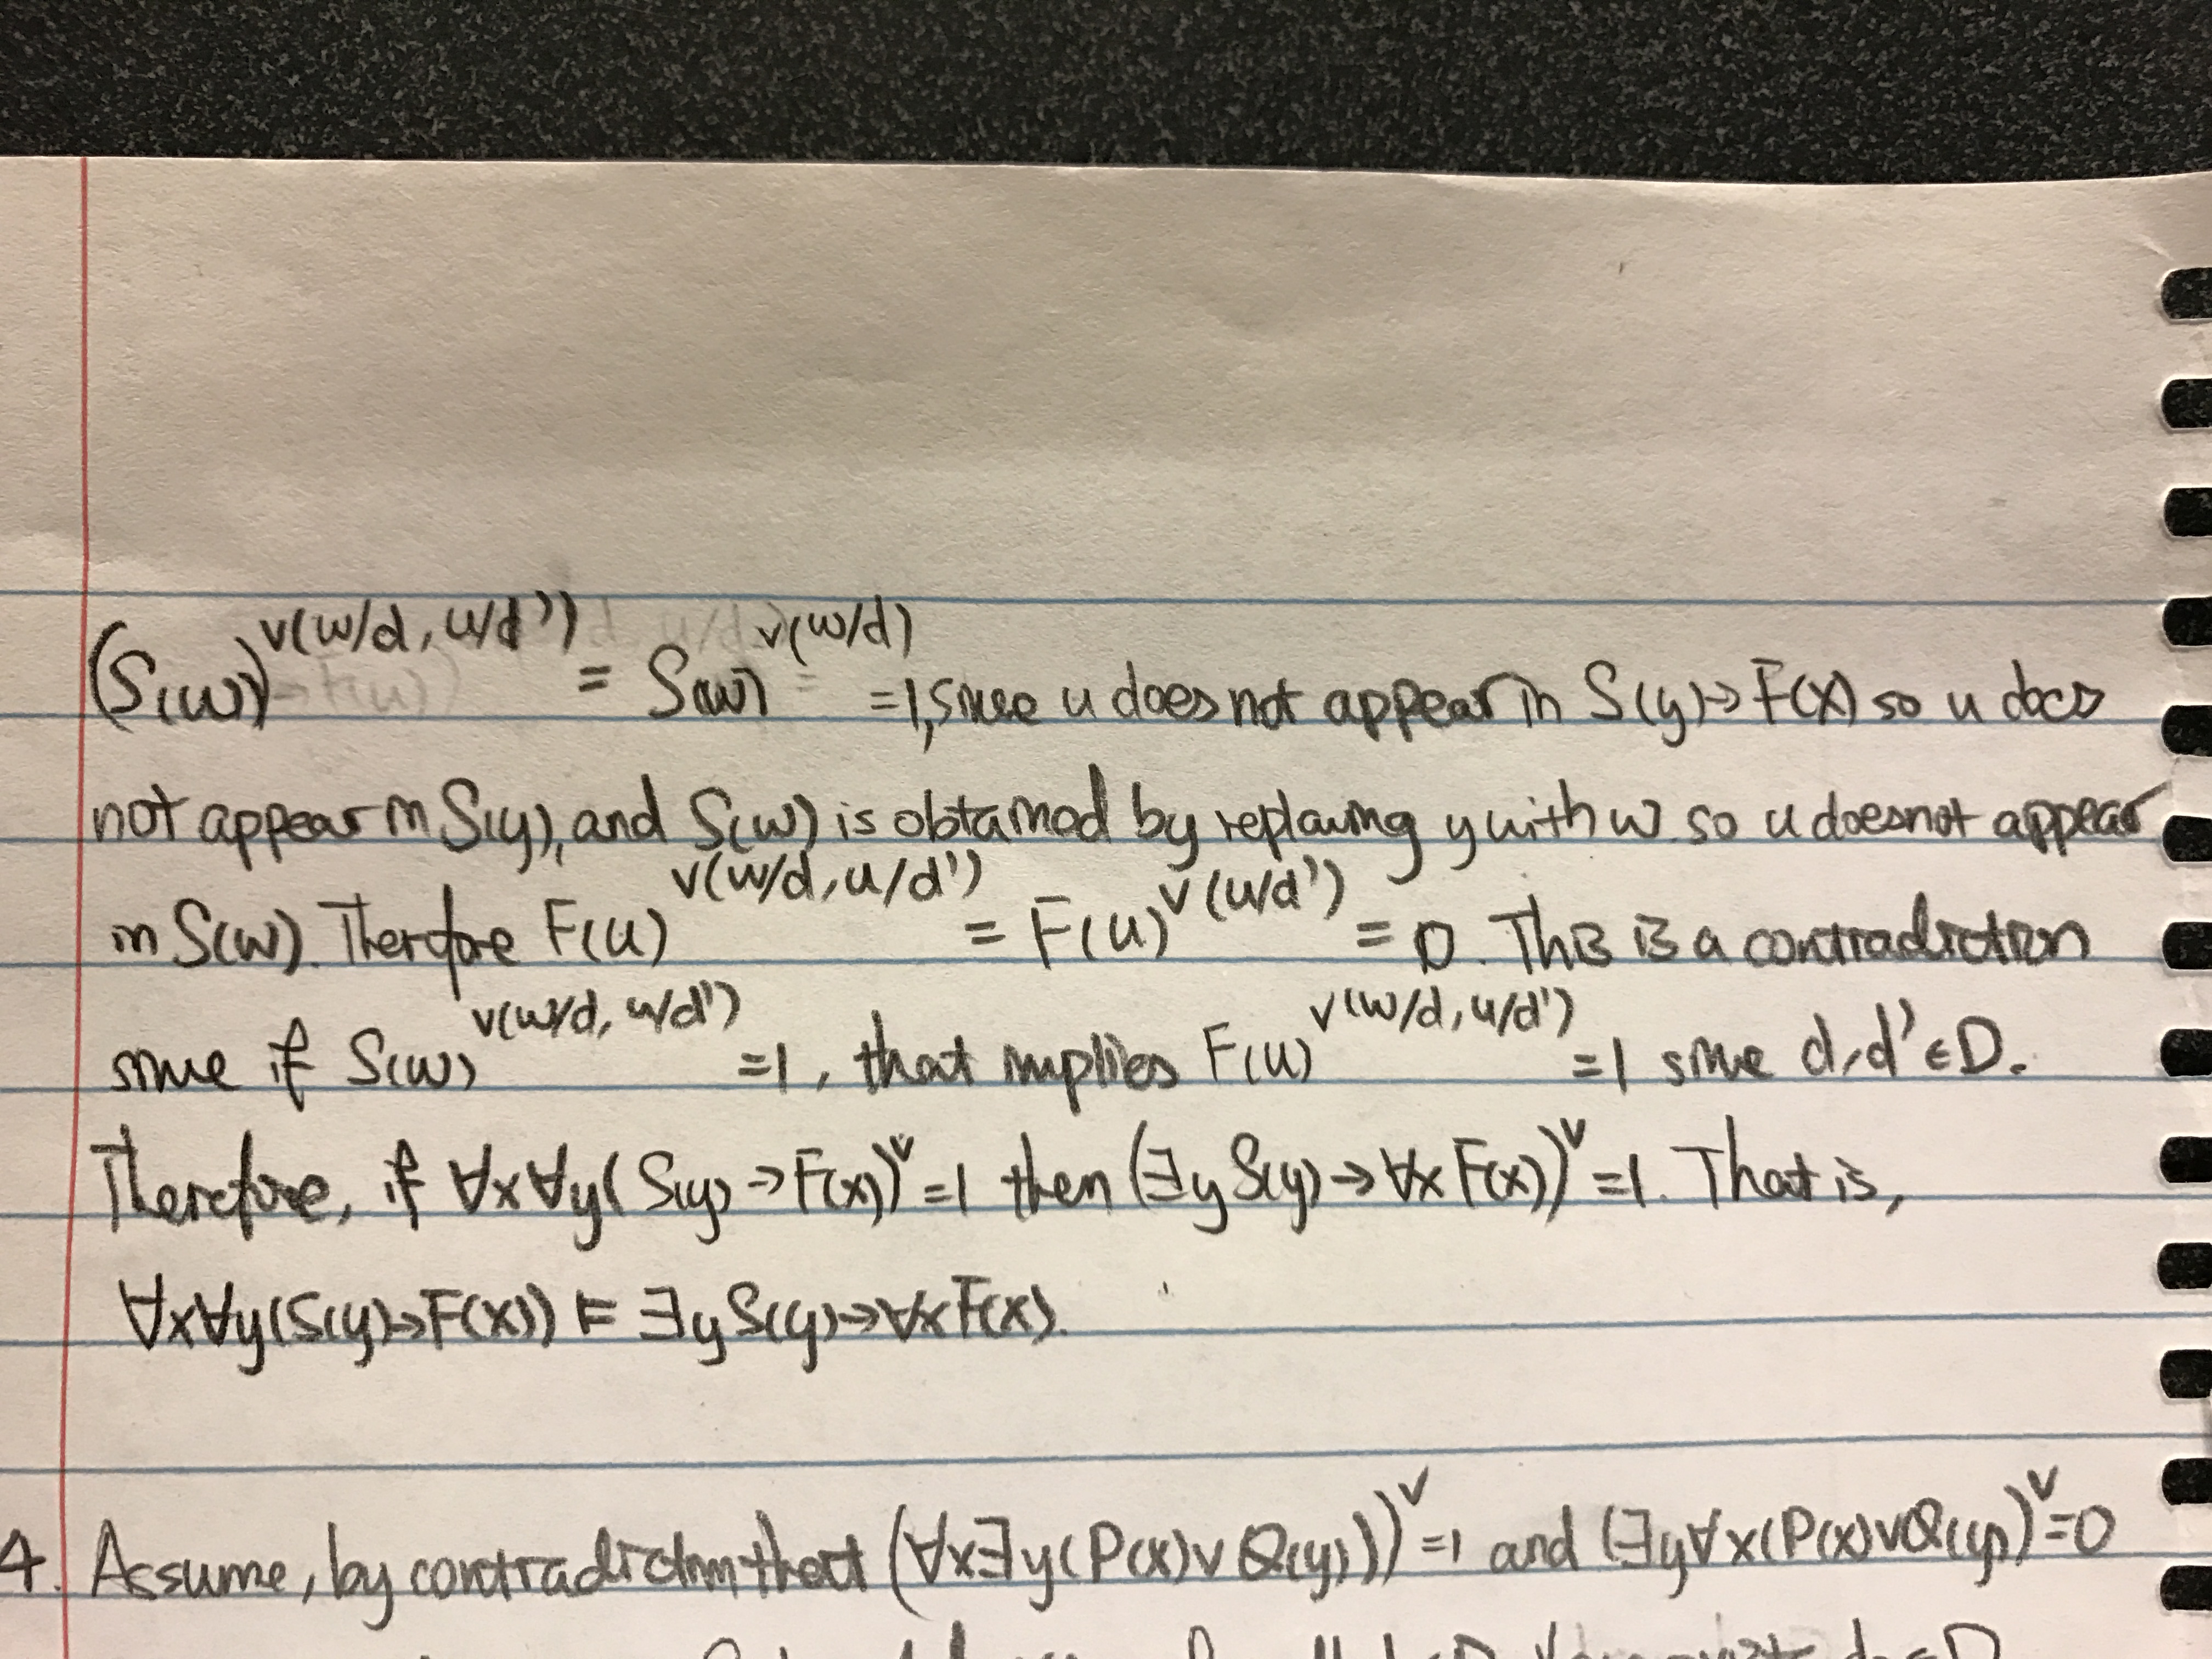 (S(w))^v(w/d, u/d') = S(w)^v(w/d) = 1, since u does not appear in S(y)→F(x) so u does
not appear in S(y), and S(w) is obtained by replacing y with w. so u does not appear
in S(w). Therefore F(u)^v(w/d, u/d') = F(u)^v(u/d') = 0. This is a contradiction
since if S(w)^v(w/d, u/d') = 1, that implies F(u)^v(w/d, u/d') = 1 since d, d' ∈ D.
Therefore, if ∀x∀y(S(y)→F(x))^v = 1 then (∃y S(y)→∀x F(x))^v = 1. That is,
∀x∀y(S(y)→F(x)) ⊨ ∃y S(y)→∀x F(x).
4. Assume, by contradiction that (∀x∃y(P(x)∨Q(y)))^v = 1 and (∃y∀x(P(x)∨Q(y))^v = 0